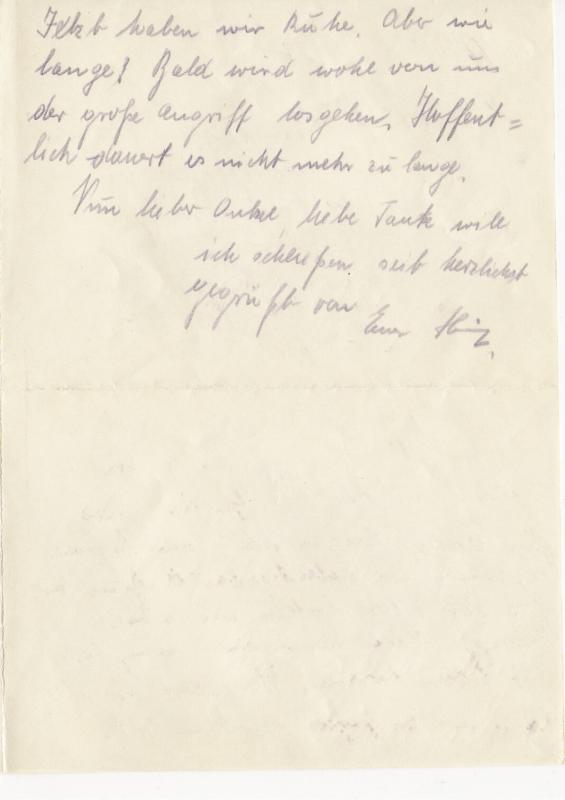 Jetzt haben wir Ruhe. Aber wie
lange! Bald wird wohl von uns
der große Angriff losgehen. Hoffent=
lich dauert es nicht mehr zu lange.
Nun lieber Onkel, liebe Tante will
ich schließen seit herzlichst
gegrüßt von
Euer